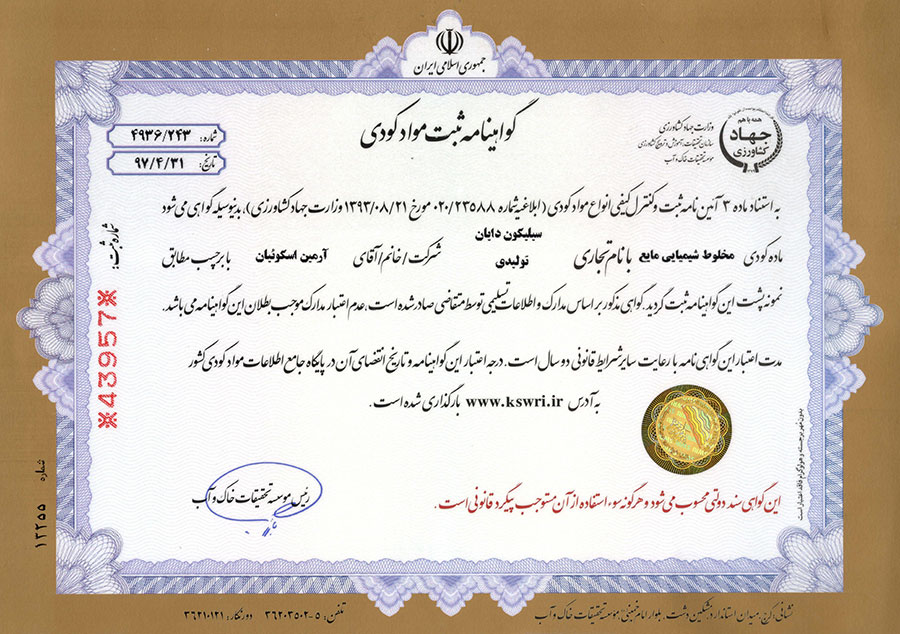 جمهوری اسلامی ایران
گواهینامه ثبت مواد کودی
شماره: ۴۹۳۶/۲۴۳
تاریخ: ۹۷/۴/۳۱
همه با هم
جهاد
کشاورزی
وزارت جهاد کشاورزی
سازمان تحقیقات، آموزش و ترویج کشاورزی
موسسه تحقیقات خاک و آب
به استناد ماده ۳ آئین نامه ثبت و کنترل کیفی انواع مواد کودی (ابلاغیه شماره ۰۲۰/۲۳۵۸۸ مورخ ۱۳۹۳/۰۸/۲۱ وزارت جهاد کشاورزی)، بدینوسیله گواهی می شود
ماده کودی مخلوط شیمیایی مایع با نام تجاری سیلیکون دایان تولیدی شرکت/خانم/آقای آرمین اسکوئیان با برچسب مطابق
نمونه پشت این گواهینامه ثبت گردید. گواهی مذکور بر اساس مدارک و اطلاعات تسلیمی توسط متقاضی صادر شده است، عدم اعتبار مدارک موجب بطلان این گواهینامه می باشد.
مدت اعتبار این گواهی نامه با رعایت سایر شرایط قانونی دو سال است. درجه اعتبار این گواهینامه و تاریخ انقضای آن در پایگاه جامع اطلاعات مواد کودی کشور
به آدرس www.kswri.ir بارگذاری شده است.
این گواهی سند دولتی محسوب می شود و هرگونه سوء استفاده از آن مستوجب پیگرد قانونی است.
رئیس موسسه تحقیقات خاک و آب
شماره ثبت:
※43957※
شماره ۱۳۲۵۵
بدون مهر برجسته و هولوگرام فاقد اعتبار است
نشانی: کرج، میدان استاندارد، مشکین دشت، بلوار امام خمینی، موسسه تحقیقات خاک و آب
تلفن: ۵-۳۶۲۰۳۵۰۲ دورنگار: ۳۶۲۱۰۱۲۱